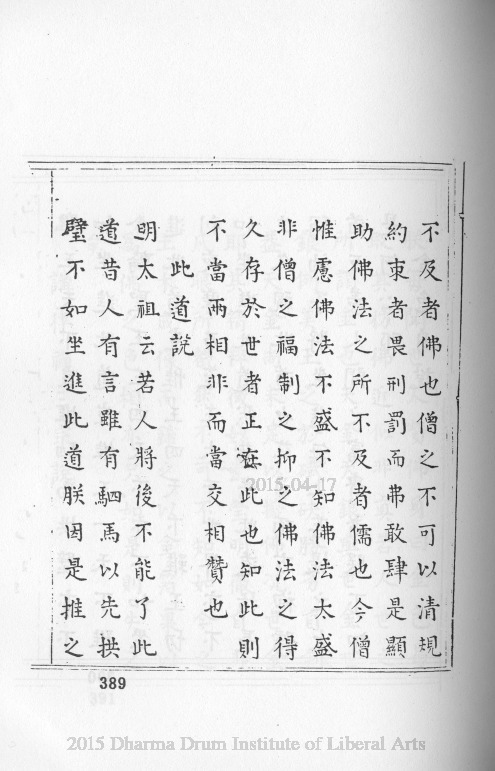 不及者佛也僧之不可以清規
約束者畏刑罰而弗敢肆是顯
助佛法之所不及者儒也今僧
惟慮佛法不盛不知佛法太盛
非僧之福制之抑之佛法之得
久存於世者正在此也知此則
不當兩相非而當交相贊也
此道說
明太祖云若人將後不能了此
道昔人有言雖有駟馬以先拱
璧不如坐進此道朕因是推之
389
2015-04-17
2015 Dharma Drum Institute of Liberal Arts